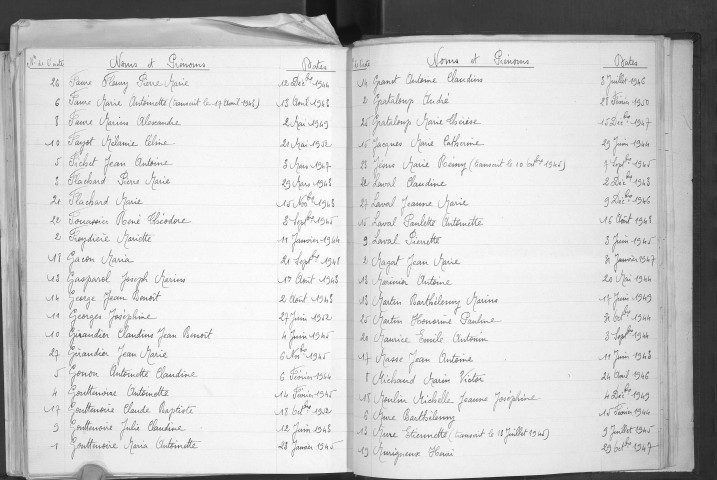 Nos de l'acte Noms et Prénoms Dates
26 Faure Fleury Pierre Marie 12 Décbre 1944
6 Faure Marie Antoinette (transcrit le 17 Avril 1948) 13 Avril 1948
8 Favre Marius Alexandre 2 Mai 1949
10 Fayot Mélanie Céline 21 Mai 1952
5 Fichet Jean Antoine 3 Mars 1947
3 Flachard Pierre Marie 29 Mars 1948
21 Flachard Marie 15 Novbre 1948
22 René Théodore 8 Septbre 1945
2 Freydière Mariette 11 Janvier 1944
18 Gacon Maria 21 Septbre 1948
13 Gasparol Joseph Marius 17 Août 1948
14 George Jean Benoit 2 Août 1948
11 Georges Joséphine 27 Juin 1952
10 Girardier Claudius Jean Benoit 4 Juin 1945
27 Girardier Jean Marie 6 Novbre 1945
5 Gonon Antoinette Claudine 6 Février 1944
4 Gouttenoire Antoinette 14 Février 1945
17 Gouttenoire Claude Baptiste 18 Octbre 1952
9 Gouttenoire Julie Claudine 12 Juin 1948
1 Gouttenoire Maria Antoinette 28 Janvier 1945
Noms et Prénoms Dates
14 Granet Antoine Claudius 8 Juillet 1946
2 Grataloup André 28 Février 1950
25 Grataloup Marie Thérèse 15 Décbre 1947
15 Jacques Marie Catherine 29 Juin 1944
23 Jean Marie Rémy (transcrit le 10 Octbre 1945) 7 Septbre 1945
22 Laval Claudine 2 Décbre 1948
27 Laval Jeanne Marie 9 Décbre 1946
15 Laval Paulette Antoinette 16 Août 1948
9 Laval Pierrette 3 Juin 1945
2 Magat Jean Marie 31 Janvier 1947
13 Antoine 20 Mai 1944
13 Martin Barthélemy Marius 17 Juin 1949
25 Martin Honorine Pauline 31 Octbre 1944
21 Maurice Emile Antonin 3 Septbre 1944
17 Masse Jean Antoine 11 Juin 1948
8 Michaud Marin Victor 24 Avril 1946
15 Moulin Michelle Jeanne Joséphine 4 Décbre 1949
6 Mure Barthélemy 15 Février 1944
13 Mure Etiennette (transcrit le 18 Juillet 1945) 9 Juillet 1945
19 Murigneux Henri 29 Octbre 1947